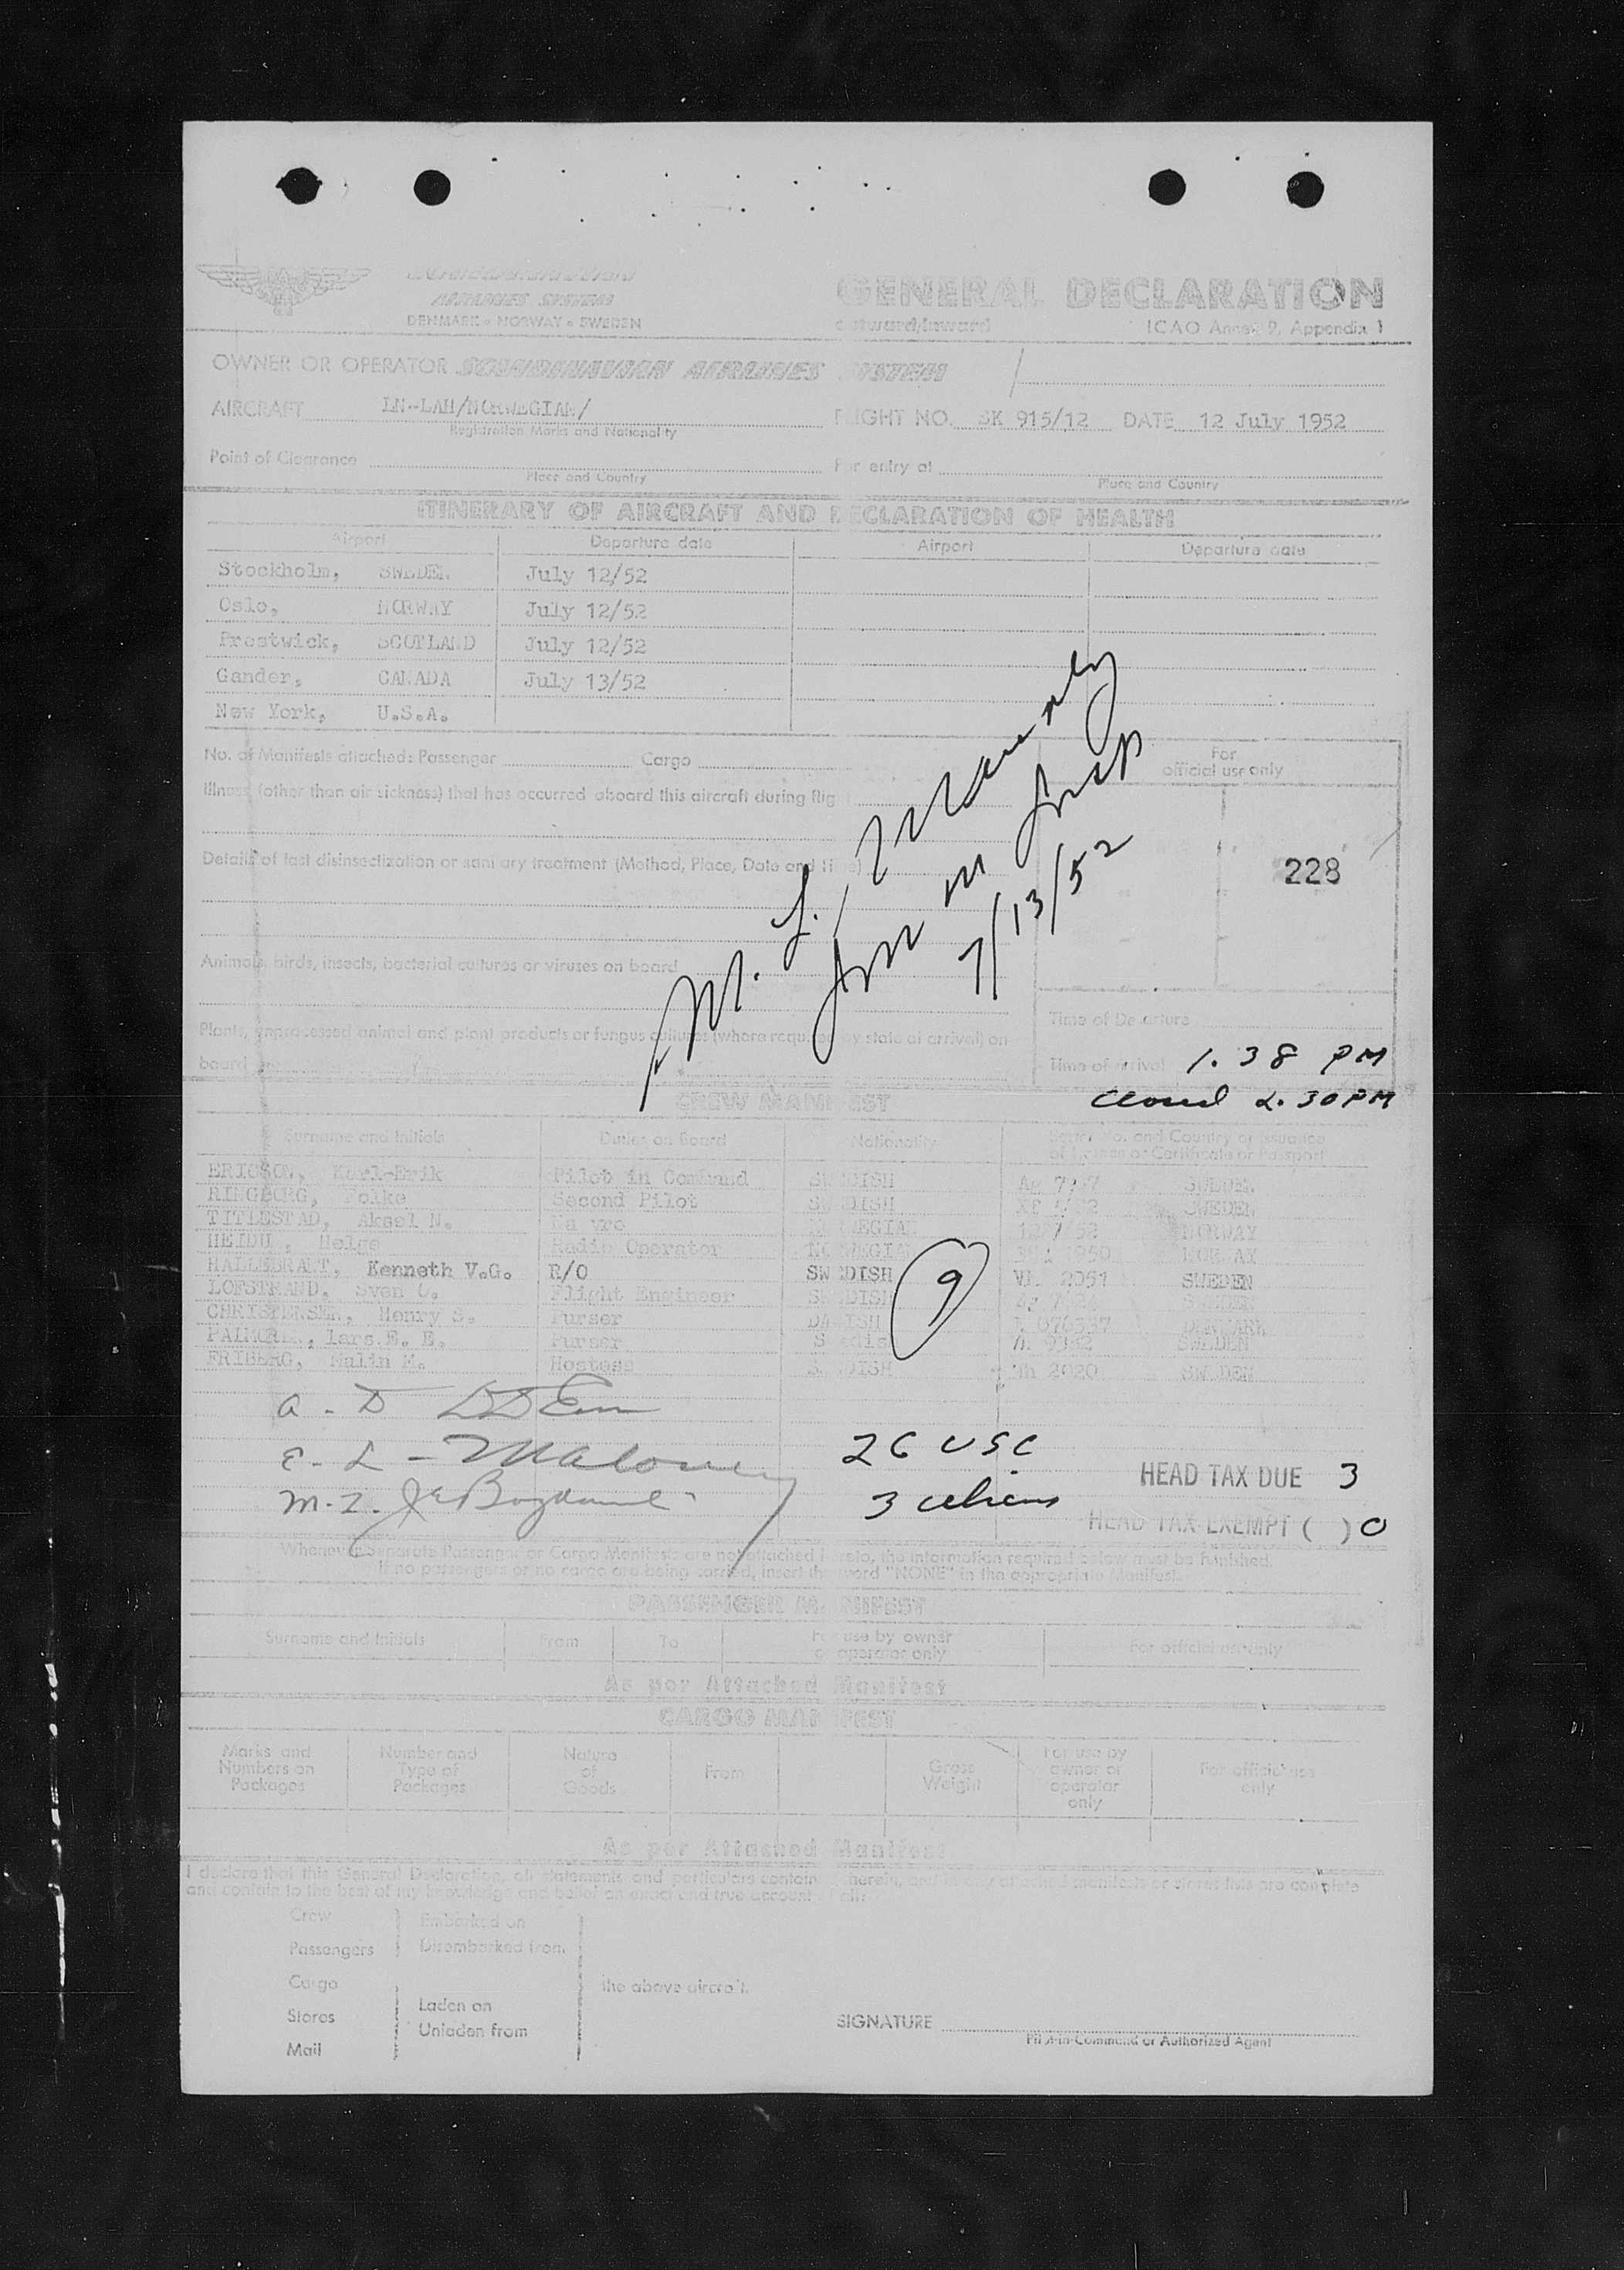 AIRLINES SYSTEM
DENMARK • NORWAY • SWEDEN
GENERAL DECLARATION
outward/inward ICAO Annex 9, Appendix 1
OWNER OR OPERATOR SCANDINAVIAN AIRLINES SYSTEM
AIRCRAFT LN-LAH/NORWEGIAN/
Registration Marks and Nationality
FLIGHT NO. SK 915/12 DATE 12 July 1952
Point of Clearance
Place and Country
For entry at
Place and Country
ITINERARY OF AIRCRAFT AND DECLARATION OF HEALTH
Airport Departure date Airport Departure date
Stockholm, SWEDEN July 12/52
Oslo, NORWAY July 12/52
Prestwick, SCOTLAND July 12/52
Gander, CANADA July 13/52
New York, U.S.A.
No. of Manifests attached: Passenger Cargo
For
official use only
Illness (other than air sickness) that has occurred aboard this aircraft during flig
Details of last disinsectization or sanitary treatment (Method, Place, Date and Time)
228
M. L.
7/13/52
Animals, birds, insects, bacterial cultures or viruses on board
Plants, unprocessed animal and plant products or fungus cultures (where required by state of arrival) on
board
Time of Departure
Time of arrival 1.38 PM
closed 2.30 PM
CREW MANIFEST
Surname and Initials Duties on Board Nationality
of License or Certificate or Passport
ERICSON, Karl-Erik Pilot in Command SWEDISH SWEDEN
RINGBORG, Folke Second Pilot SWEDISH SWEDEN
TITLESTAD, Aksel N. NORWEGIAN NORWAY
Helge Radio Operator NORWEGIAN NORWAY
Kenneth V.G. R/O SWEDISH 2051 SWEDEN
LOFSTRAND, Sven Flight Engineer SWEDISH SWEDEN
CHRISTENSEN, Henry S. Purser DANISH DENMARK
Lars E. E. Purser Swedish SWEDEN
FRIBERG, Malin M. Hostess SWEDISH 2020 SWEDEN
9
A - D
E - L - Maloney
M - Z.
26 USC
3 aliens
HEAD TAX DUE 3
HEAD TAX EXEMPT ( ) 0
Whenever separate Passenger or Cargo Manifests are not attached hereto, the information required below must be furnished.
If no passengers or no cargo are being carried, insert the word "NONE" in the appropriate Manifest.
PASSENGER MANIFEST
Surname and Initials From To For use by owner or operator only For official use only
As per Attached Manifest
CARGO MANIFEST
Marks and Numbers on Packages Number and Type of Packages Nature of Goods From Gross Weight For use by owner or operator only For official use only
As per Attached Manifest
I declare that this General Declaration, all statements and particulars contained herein, and in any attached manifests or stores lists are complete
and contain to the best of my knowledge and belief an exact and true account of all:
Crew Embarked on
Passengers Disembarked from
Cargo the above aircraft.
Stores Laden on
Unladen from
Mail
SIGNATURE
Pilot-in-Command or Authorized Agent